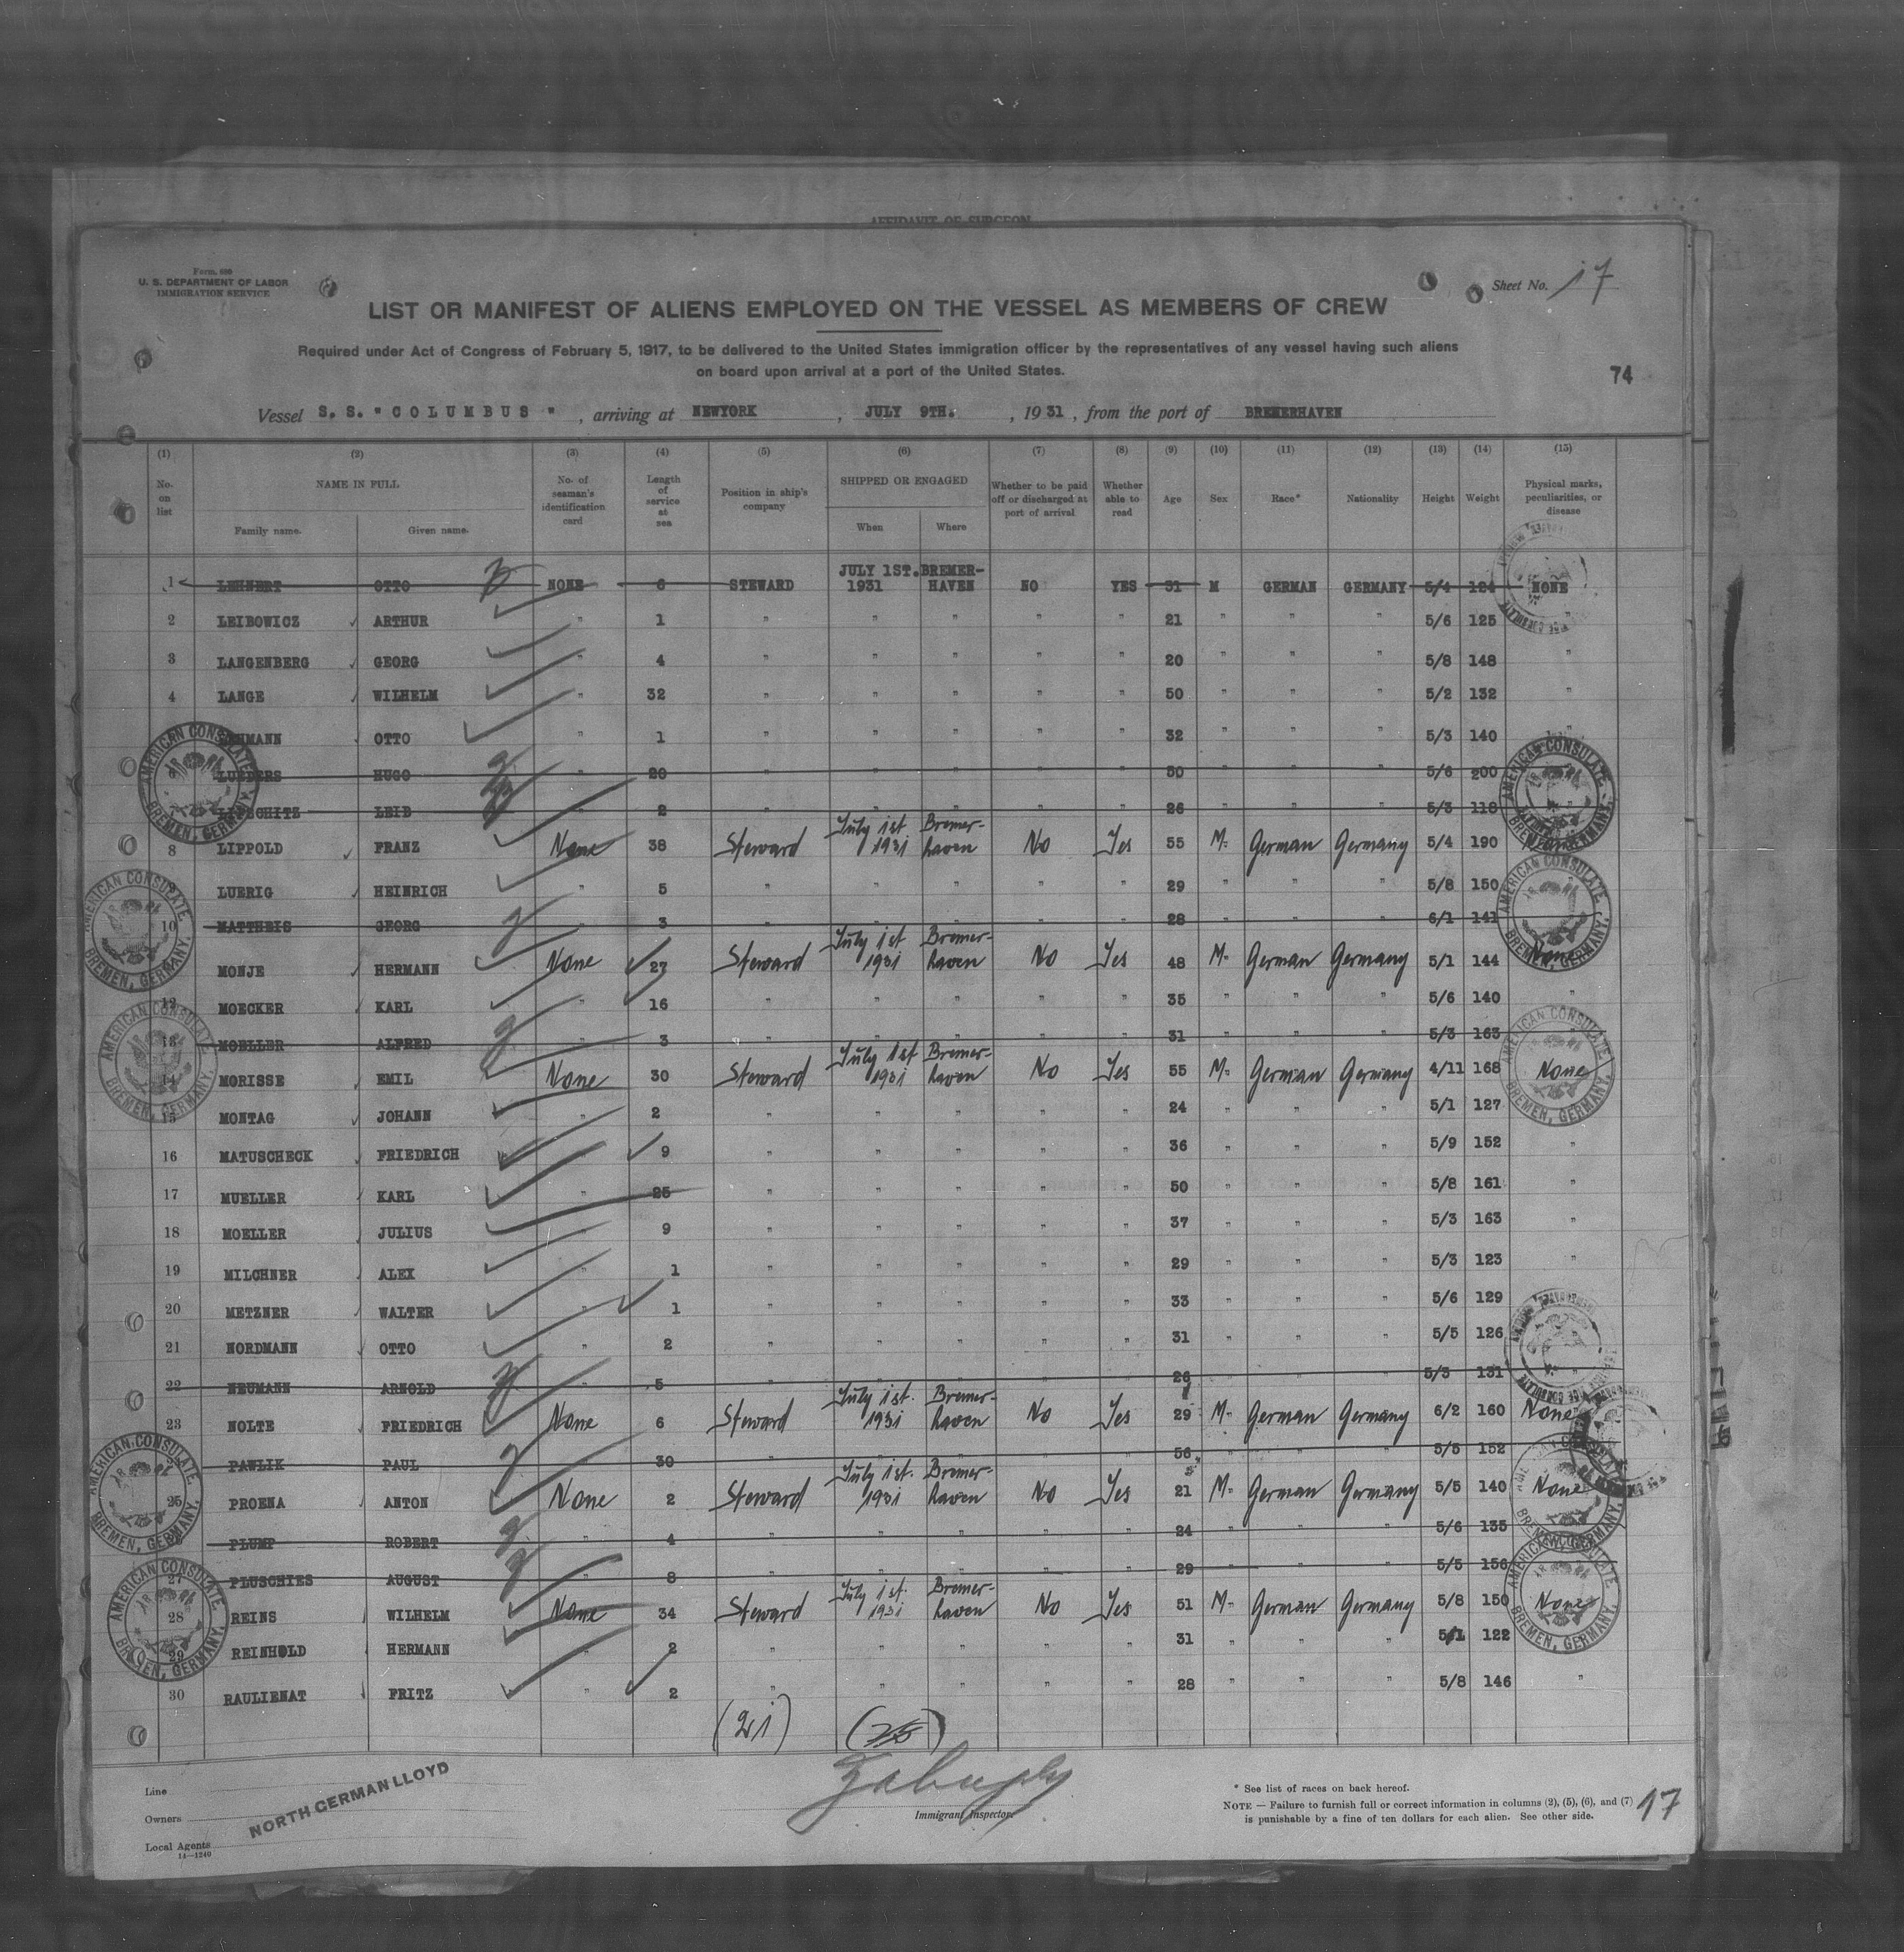 AFFIDAVIT OF SURGEON
Form 680
U. S. DEPARTMENT OF LABOR
IMMIGRATION SERVICE
Sheet No. 17
LIST OR MANIFEST OF ALIENS EMPLOYED ON THE VESSEL AS MEMBERS OF CREW
Required under Act of Congress of February 5, 1917, to be delivered to the United States immigration officer by the representatives of any vessel having such aliens
on board upon arrival at a port of the United States.
74
Vessel S. S. "COLUMBUS", arriving at NEWYORK, JULY 9TH., 1931, from the port of BREMERHAVEN
(1) (2) (3) (4) (5) (6) (7) (8) (9) (10) (11) (12) (13) (14) (15)
No. on list NAME IN FULL Family name. Given name. No. of seaman's identification card Length of service at sea Position in ship's company SHIPPED OR ENGAGED When Where Whether to be paid off or discharged at port of arrival Whether able to read Age Sex Race* Nationality Height Weight Physical marks, peculiarities, or disease
1 LEHNERT OTTO NONE 6 STEWARD JULY 1ST. 1931 BREMER-HAVEN NO YES 31 M GERMAN GERMANY 5/4 124 NONE
2 LEIBOWICZ ARTHUR " 1 " " " " " 21 " " " 5/6 125 "
3 LANGENBERG GEORG " 4 " " " " " 20 " " " 5/8 148 "
4 LANGE WILHELM " 32 " " " " " 50 " " " 5/2 132 "
OTTO " 1 " " " " " 32 " " " 5/3 140 "
LUEDERS HUGO " 20 " " " " " 50 " " " 5/6 200
LIPSCHITZ LEIB " 2 " " " " " 26 " " " 5/3 118 "
8 LIPPOLD FRANZ None 38 Steward July 1st 1931 Bremer-haven No Yes 55 M. German Germany 5/4 190
LUERIG HEINRICH " 5 " " " " " 29 " " " 5/8 150
10 MATTHEIS GEORG 3 " " " " " 28 " " " 6/1 141
MONJE HERMANN None 27 Steward July 1st 1931 Bremer-haven No Yes 48 M. German Germany 5/1 144 None
12 MOECKER KARL " 16 " " " " " 35 " " " 5/6 140 "
13 MOELLER ALFRED " 3 " " " " " 31 " " " 5/3 163
14 MORISSE EMIL None 30 Steward July 1st 1931 Bremer-haven No Yes 55 M. German Germany 4/11 168 None
15 MONTAG JOHANN " 2 " " " " " 24 " " " 5/1 127
16 MATUSCHECK FRIEDRICH " 9 " " " " " 36 " " " 5/9 152 "
17 MUELLER KARL " 25 " " " " " 50 " " " 5/8 161 "
18 MOELLER JULIUS " 9 " " " " " 37 " " " 5/3 163 "
19 MILCHNER ALEX " 1 " " " " " 29 " " " 5/3 123 "
20 METZNER WALTER " 1 " " " " " 33 " " " 5/6 129
21 NORDMANN OTTO " 2 " " " " " 31 " " " 5/5 126
22 NEUMANN ARNOLD " 5 " " " " " 26 " " " 5/3 131 "
23 NOLTE FRIEDRICH None 6 Steward July 1st. 1931 Bremer-haven No Yes 29 M. German Germany 6/2 160 None
PAWLIK PAUL 30 " " " " " 56 " " " 5/5 152
25 PROENA ANTON None 2 Steward July 1st. 1931 Bremer-haven No Yes 21 M. German Germany 5/5 140 None
PLUMP ROBERT " 4 " " " " " 24 " " " 5/6 135
27 PLUSCHIES AUGUST " 8 " " " " " 29 " " " 5/5 156
28 REINS WILHELM None 34 Steward July 1st. 1931 Bremer-haven No Yes 51 M. German Germany 5/8 150 None
29 REINHOLD HERMANN " 2 " " " " " 31 " " " 5/1 122
30 RAULIENAT FRITZ " 2 " " " " " 28 " " " 5/8 146 "
AMERICAN CONSULATE BREMEN, GERMANY.
AMERICAN CONSULATE BREMEN, GERMANY.
AMERICAN CONSULATE BREMEN, GERMANY.
AMERICAN CONSULATE BREMEN, GERMANY.
AMERICAN CONSULATE BREMEN, GERMANY.
AMERICAN CONSULATE BREMEN, GERMANY.
AMERICAN CONSULATE BREMEN, GERMANY.
AMERICAN CONSULATE BREMEN, GERMANY.
AMERICAN CONSULATE BREMEN, GERMANY.
(21)
Line
Owners
Local Agents
NORTH GERMAN LLOYD
14—1240
Immigrant Inspector.
* See list of races on back hereof.
NOTE — Failure to furnish full or correct information in columns (2), (5), (6), and (7)
is punishable by a fine of ten dollars for each alien. See other side.
17